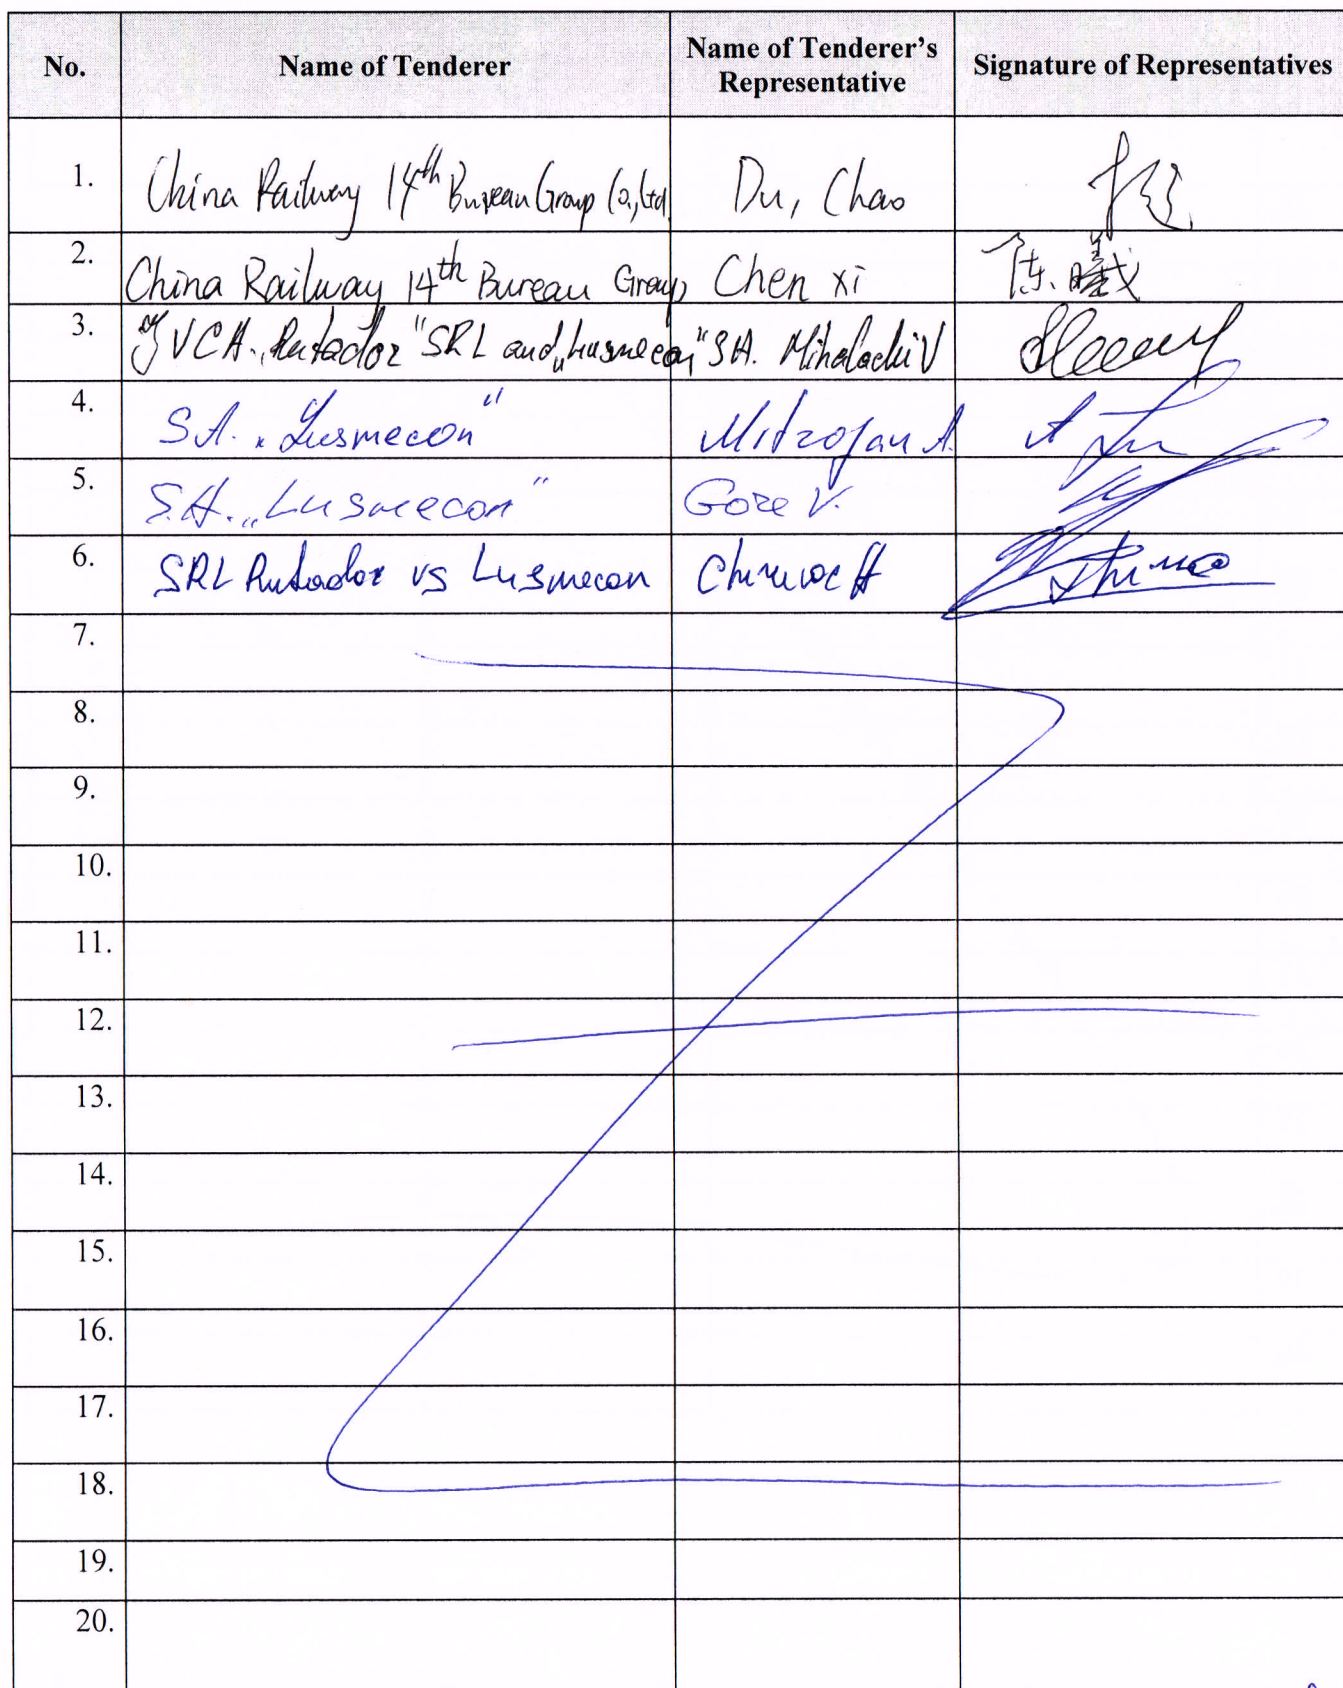 No. Name of Tenderer Name of Tenderer's Representative Signature of Representatives
1. China Railway 14th Bureau Group Co., Ltd. Du, Chao
2. China Railway 14th Bureau Group Chen xi 陈曦
3. JVCA „Rutador" SRL and „Lusmecon" SA. Mihalachi V
4. S.A. „Lusmecon" Mitrofan A.
5. S.A. „Lusmecon" Gore V.
6. SRL Rutador vs Lusmecon
7.
8.
9.
10.
11.
12.
13.
14.
15.
16.
17.
18.
19.
20.